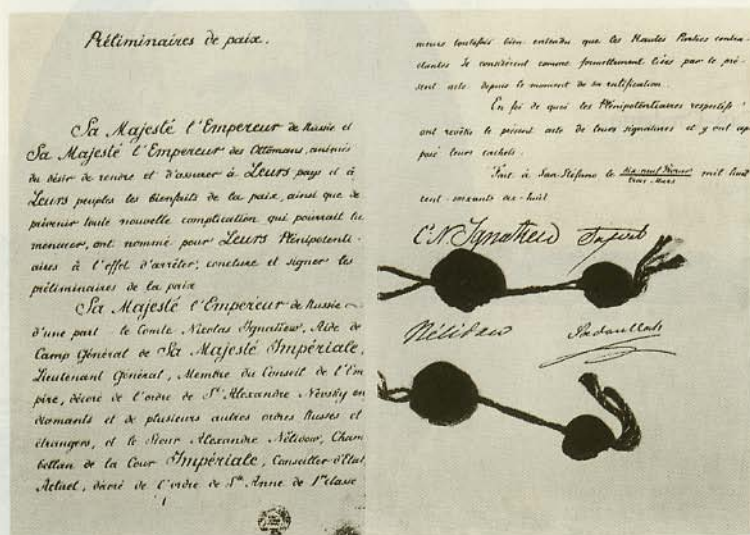 Préliminaires de paix.
Sa Majesté l'Empereur de Russie et
Sa Majesté l'Empereur des Ottomans, animés
du désir de rendre et d'assurer à Leurs pays et à
Leurs peuples les bienfaits de la paix, ainsi que de
prévenir toute nouvelle complication qui pourrait la
menacer, ont nommé pour Leurs Plénipotenti-
aires à l'effet d'arrêter, conclure et signer les
préliminaires de la paix
Sa Majesté l'Empereur de Russie
d'une part le Comte Nicolas Ignatiew, Aide de
Camp Général de Sa Majesté Impériale,
Lieutenant Général, Membre du Conseil de l'Em
pire, décoré de l'ordre de St Alexandre Nevsky en
diamants et de plusieurs autres ordres Russes et
étrangers, et le Sieur Alexandre Nélidow, Cham
bellan de la Cour Impériale, Conseiller d'Etat
Actuel, décoré de l'ordre de Ste Anne de 1re classe
meurs toutefois bien entendu que les Hautes Parties contra-
ctantes se considèrent comme formellement liées par le pré-
sent acte depuis le moment de sa ratification.
En foi de quoi les Plénipotentiaires respectifs
ont revêtu le présent acte de leurs signatures et y ont ap
posé leurs cachets.
Fait à San-Stéfano le dix-neuf Février
trois Mars mil huit
cent soixante dix-huit
Cte N. Ignatiew Safvet
Nélidow Sadoullah